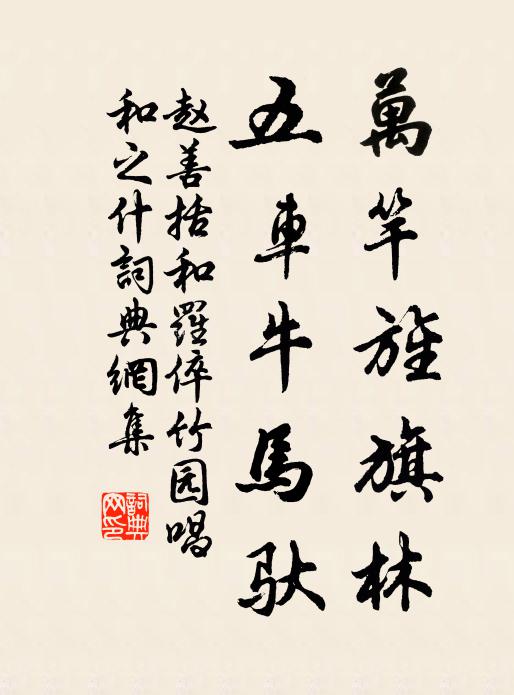 萬竿旌旗林
五車牛馬馱
赵善括和羅倅竹园唱
和之什詞典網集
詞典
网印